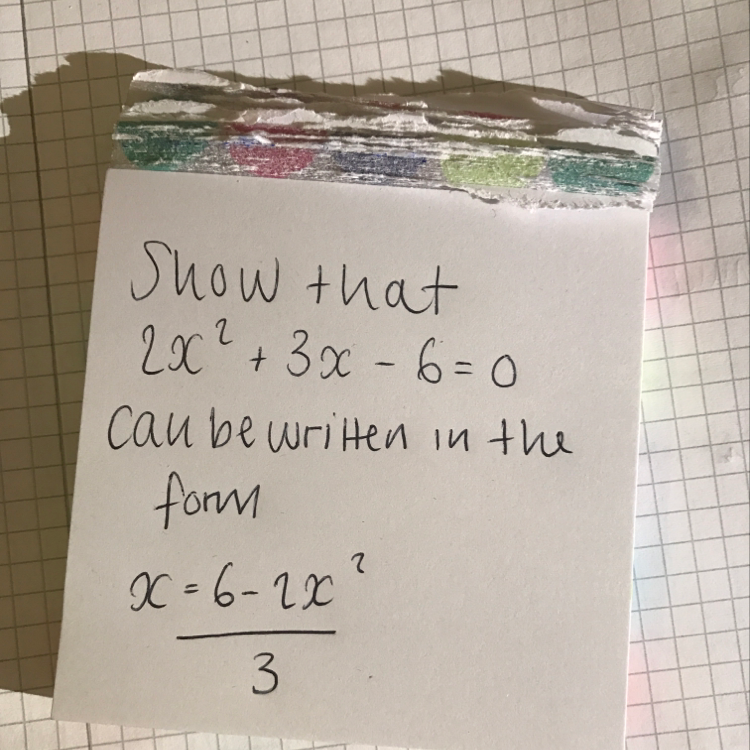 Show that
2x² + 3x - 6 = 0
can be written in the
form
x = 6 - 2x²
3